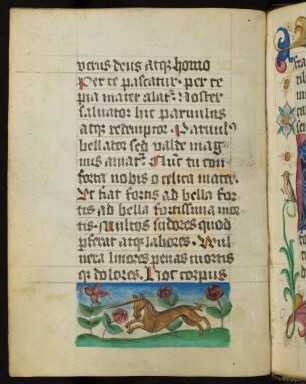 verus deus atq; homo
Per te pascatur. per te
pia mater alat'. Noster
saluator hic paruulus
atq; redemptor. Paruul9
bellator sed valde mag
nus amat'. Nuc tu con
forta nobis o celica mater.
Et fiat fortis ad bella for
tis. ad bella fortissima mor
tis. Multos sudores quod
pferat atq; labores. Vul
nera liuores penas mortis
q; dolores. Hoc corpus